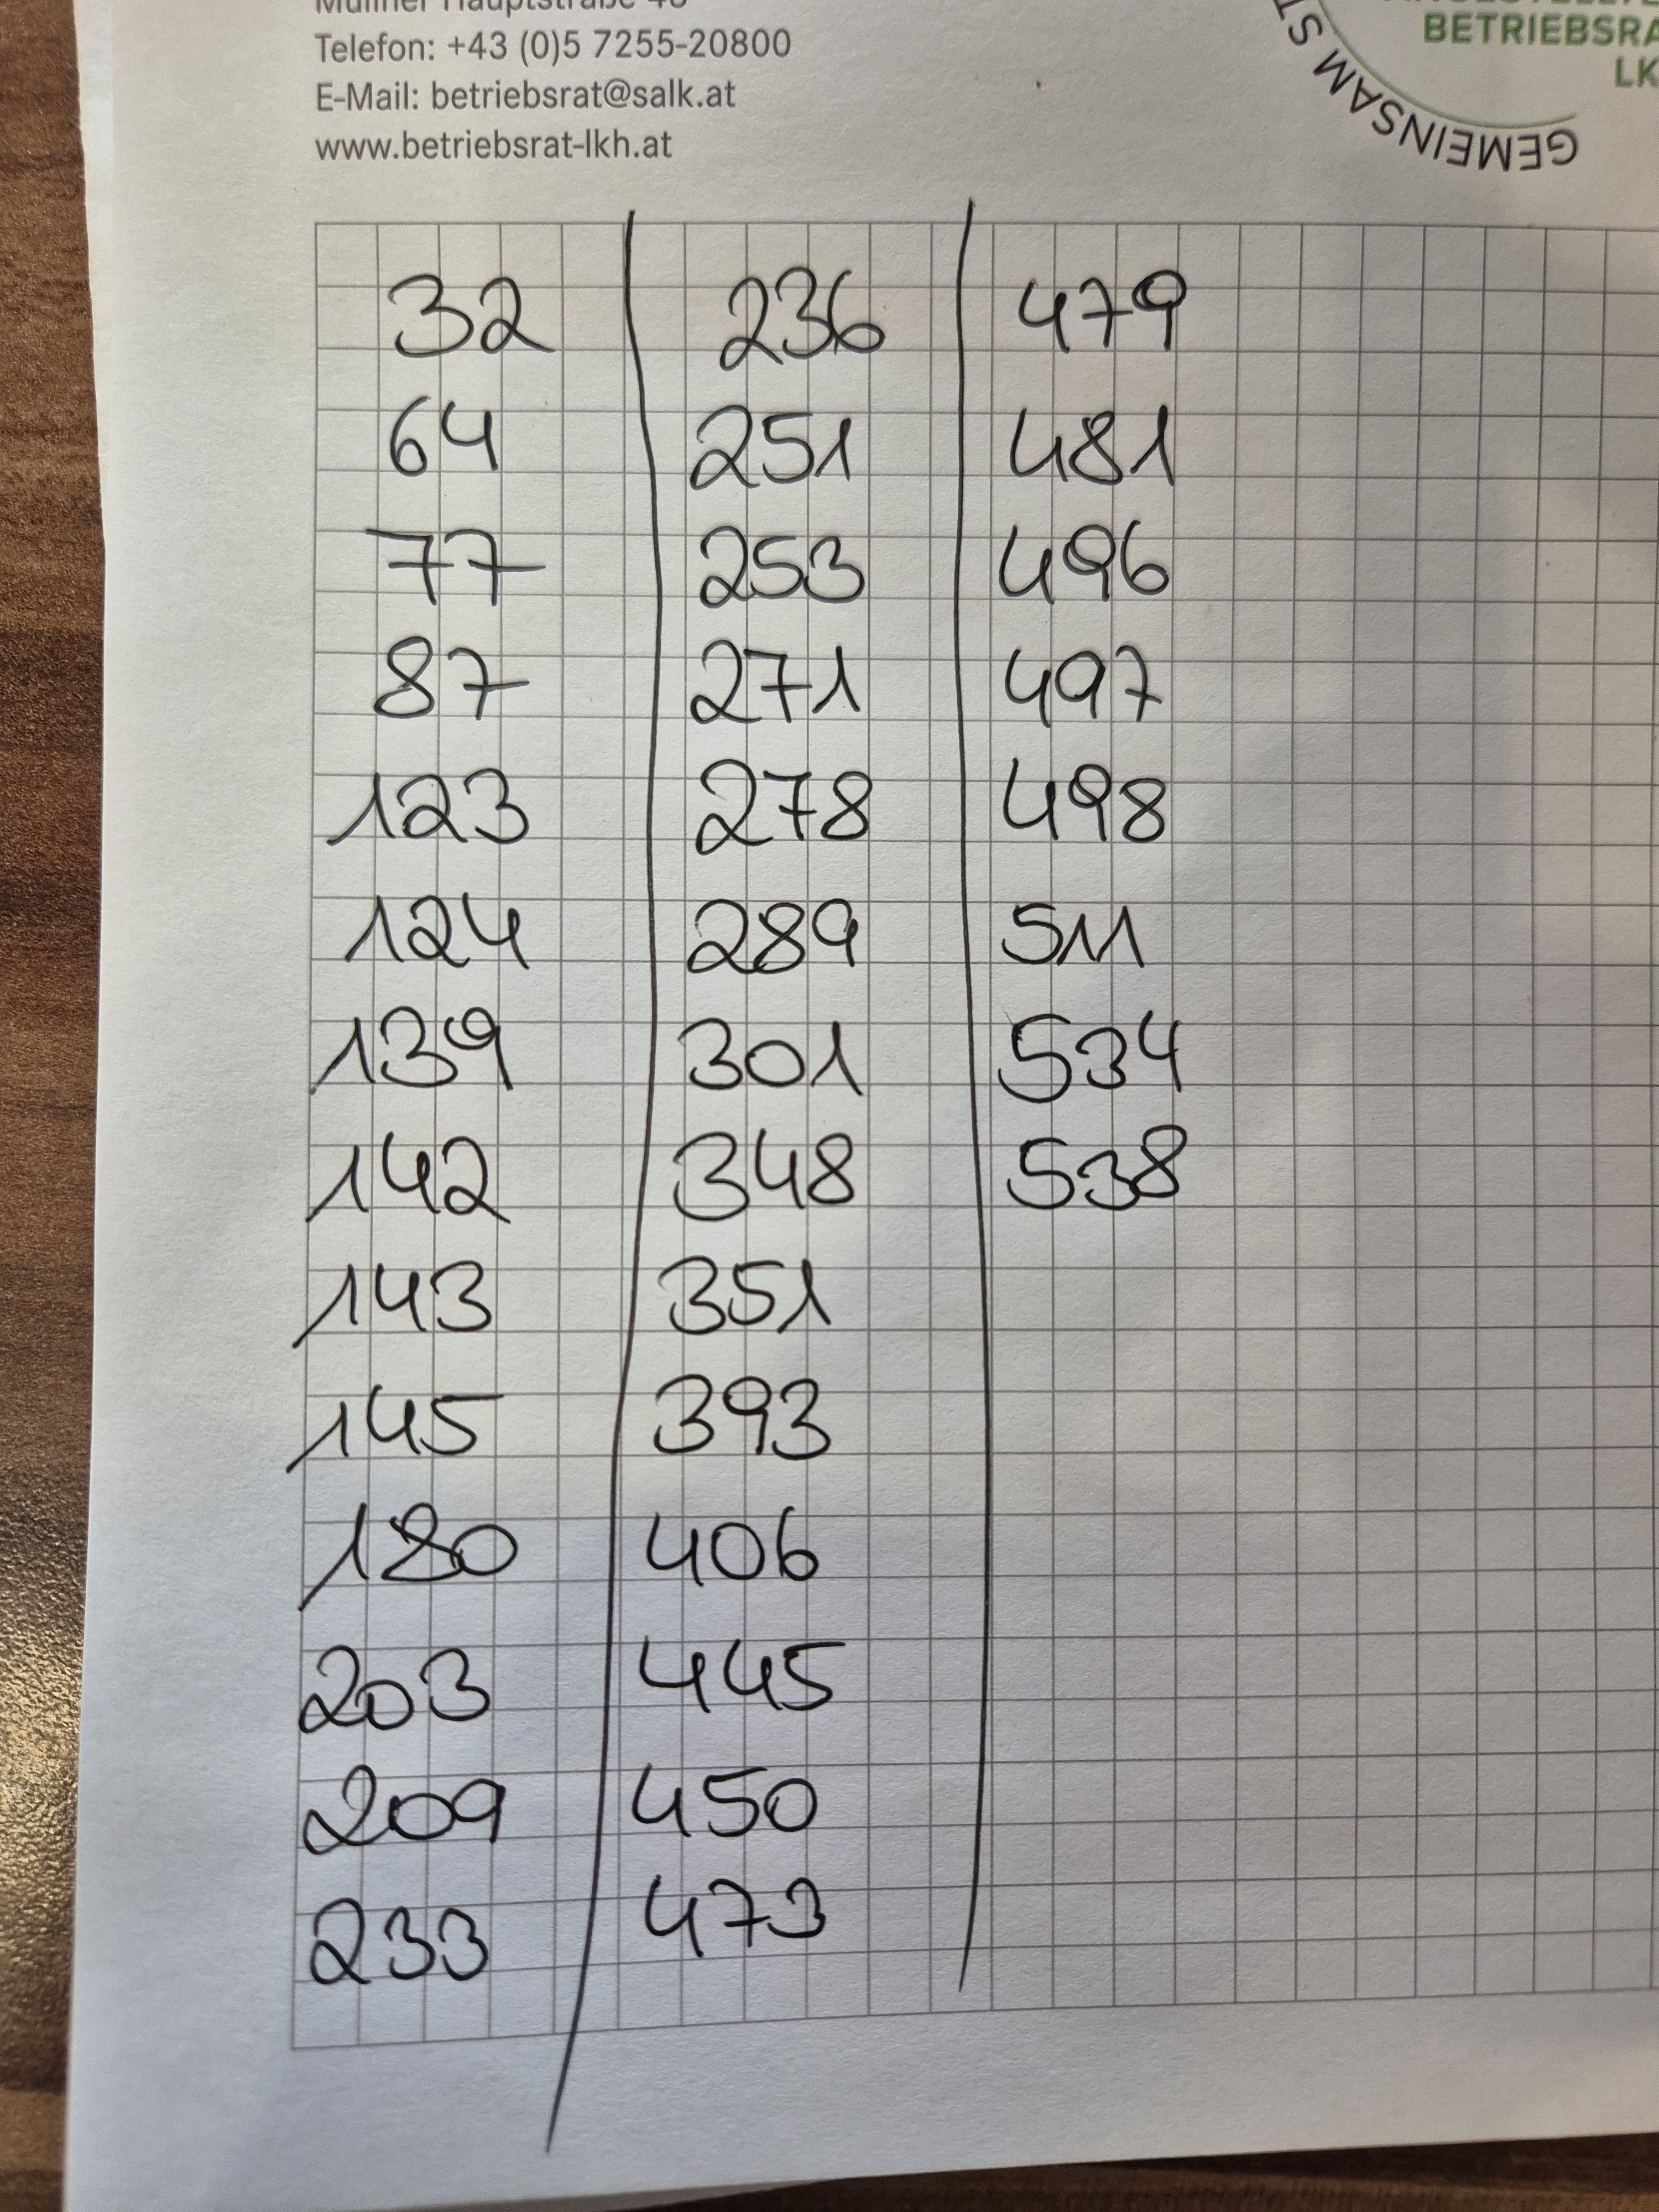 Telefon: +43 (0)5 7255-20800
E-Mail: betriebsrat@salk.at
www.betriebsrat-lkh.at
BETRIEBSRA
LK
GEMEINSAM ST
32
64
77
87
123
124
139
142
143
145
180
203
209
233
236
251
253
271
278
289
301
348
351
393
406
445
450
473
479
481
496
497
498
511
534
538